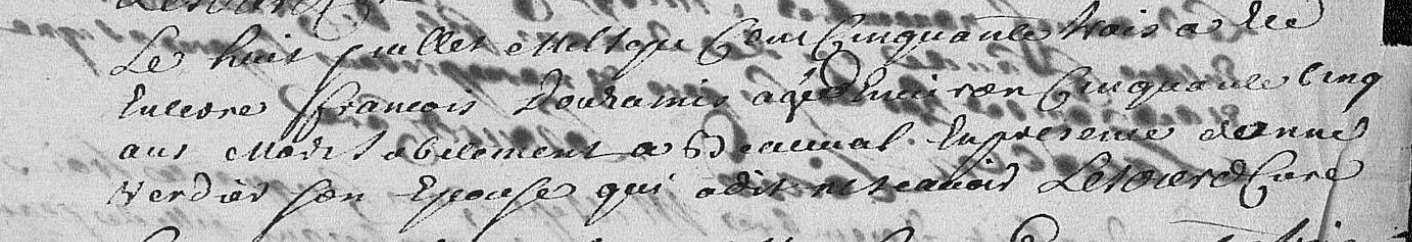 Le huit juillet mil sept Cent Cinquante trois a été
Enterré françois Douramis agé d'Environ Cinquante Cinq
ans mort subitement a En presence d'anne
Verdier son Epouse qui a dit ne scavoir Curé